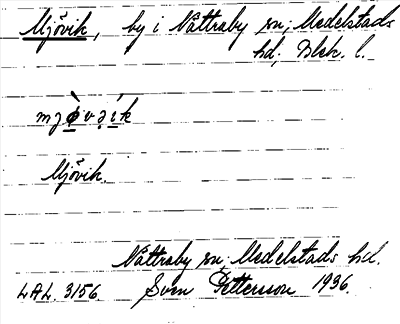 Mjövik, by i Nättraby sn; Medelstads
hd, Blek. l.
Mjövik.
Nättraby sn. Medelstads hd.
LAL 3156 Sven Pettersson 1936.